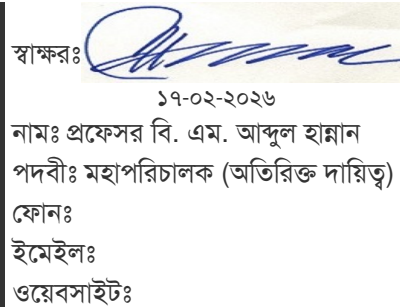 স্বাক্ষরঃ
১৭-০২-২০২৬
নামঃ প্রফেসর বি. এম. আব্দুল হান্নান
পদবীঃ মহাপরিচালক (অতিরিক্ত দায়িত্ব)
ফোনঃ
ইমেইলঃ
ওয়েবসাইটঃ